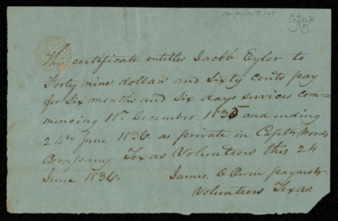 This certificate entitles Jacob Eyler to
Forty nine dollars and Sixty cents pay
for Six months and Six days services com-
mencing 18th December 1835 and ending
24th June 1836 as private in Captn Woods
Company Texas Volunteers this 24
June 1836. James D Owen paymstr
Volunteers Texas